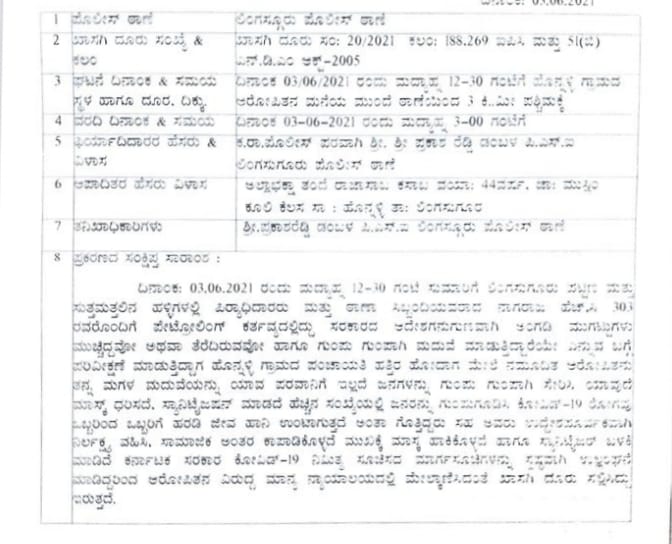 ದಿನಾಂಕ: 03.06.2021
1 ಪೊಲೀಸ್ ಠಾಣೆ ಲಿಂಗಸ್ಗೂರು ಪೊಲೀಸ್ ಠಾಣೆ
2 ಖಾಸಗಿ ದೂರು ಸಂಖ್ಯೆ & ಖಾಸಗಿ ದೂರು ಸಂ: 20/2021 ಕಲಂ: 188.269 ಐಪಿಸಿ ಮತ್ತು 51(ಬಿ)
ಕಲಂ ಎನ್.ಡಿ.ಎಂ ಆಕ್ಟ್-2005
3 ಘಟನೆ ದಿನಾಂಕ & ಸಮಯ ದಿನಾಂಕ 03/06/2021 ರಂದು ಮಧ್ಯಾಹ್ನ 12-30 ಗಂಟೆಗೆ ಹೊನ್ನಳ್ಳಿ ಗ್ರಾಮದ
ಸ್ಥಳ ಹಾಗೂ ದೂರ, ದಿಕ್ಕು. ಆರೋಪಿತನ ಮನೆಯ ಮುಂದೆ ಠಾಣೆಯಿಂದ 3 ಕಿ.ಮೀ ಪಶ್ಚಿಮಕ್ಕೆ
4 ವರದಿ ದಿನಾಂಕ & ಸಮಯ ದಿನಾಂಕ 03-06-2021 ರಂದು ಮಧ್ಯಾಹ್ನ 3-00 ಗಂಟೆಗೆ
5 ಫಿರ್ಯಾದಿದಾರರ ಹೆಸರು & ಕ.ರಾ.ಪೊಲೀಸ್ ಪರವಾಗಿ ಶ್ರೀ. ಶ್ರೀ ಪ್ರಕಾಶ ರೆಡ್ಡಿ ಡಂಬಳ ಪಿ.ಎಸ್.ಐ
ವಿಳಾಸ ಲಿಂಗಸುಗೂರು ಪೊಲೀಸ್ ಠಾಣೆ
6 ಆಪಾದಿತರ ಹೆಸರು ವಿಳಾಸ ಅಲ್ಲಾಭಕ್ಷಾ ತಂದೆ ರಾಜಾಸಾಬ ಕಸಾಬ ವಯಾ: 44ವರ್ಷ, ಜಾ: ಮುಸ್ಲಿಂ
ಕೂಲಿ ಕೆಲಸ ಸಾ : ಹೊನ್ನಳ್ಳಿ ತಾ: ಲಿಂಗಸುಗೂರ
7 ತನಿಖಾಧಿಕಾರಿಗಳು ಶ್ರೀ.ಪ್ರಕಾಶರೆಡ್ಡಿ ಡಂಬಳ ಪಿ.ಎಸ್.ಐ ಲಿಂಗಸ್ಗೂರು ಪೊಲೀಸ್ ಠಾಣೆ
8 ಪ್ರಕರಣದ ಸಂಕ್ಷಿಪ್ತ ಸಾರಾಂಶ :
ದಿನಾಂಕ: 03.06.2021 ರಂದು ಮಧ್ಯಾಹ್ನ 12-30 ಗಂಟೆ ಸುಮಾರಿಗೆ ಲಿಂಗಸುಗೂರು ಪಟ್ಟಣ ಮತ್ತು
ಸುತ್ತಮತ್ತಲಿನ ಹಳ್ಳಿಗಳಲ್ಲಿ ಪಿರ್‍ಯಾಧಿದಾರರು ಮತ್ತು ಠಾಣಾ ಸಿಬ್ಬಂದಿಯವರಾದ ನಾಗರಾಜ ಹೆಚ್.ಸಿ 303
ರವರೊಂದಿಗೆ ಪೇಟ್ರೋಲಿಂಗ್ ಕರ್ತವ್ಯದಲ್ಲಿದ್ದು ಸರಕಾರದ ಆದೇಶಗನುಗುಣವಾಗಿ ಅಂಗಡಿ ಮುಗಟ್ಟುಗಳು
ಮುಚ್ಚಿದ್ದವೋ ಅಥವಾ ತೆರೆದಿರುವವೋ ಹಾಗೂ ಗುಂಪು ಗುಂಪಾಗಿ ಮದುವೆ ಮಾಡುತ್ತಿದ್ದಾರೆಯೇ ಎನ್ನುವ ಬಗ್ಗೆ
ಪರಿವೀಕ್ಷಣೆ ಮಾಡುತ್ತಿದ್ದಾಗ ಹೊನ್ನಳ್ಳಿ ಗ್ರಾಮದ ಪಂಚಾಯತಿ ಹತ್ತಿರ ಹೋದಾಗ ಮೇಲೆ ನಮೂದಿತ ಆರೋಪಿತನು
ತನ್ನ ಮಗಳ ಮದುವೆಯನ್ನು ಯಾವ ಪರವಾನಿಗೆ ಇಲ್ಲದೆ ಜನಗಳನ್ನು ಗುಂಪು ಗುಂಪಾಗಿ ಸೇರಿಸಿ, ಯಾವುದೆ
ಮಾಸ್ಕ್ ಧರಿಸದೆ, ಸ್ಯಾನಿಟೈಜಷನ್ ಮಾಡದೆ ಹೆಚ್ಚಿನ ಸಂಖ್ಯೆಯಲ್ಲಿ ಜನರನ್ನು ಗುಂಪುಗೂಡಿಸಿ ಕೋವಿಡ್-19 ರೋಗವು
ಒಬ್ಬರಿಂದ ಒಬ್ಬರಿಗೆ ಹರಡಿ ಜೀವ ಹಾನಿ ಉಂಟಾಗುತ್ತದೆ ಅಂತಾ ಗೊತ್ತಿದ್ದರು ಸಹ ಅವರು ಉದ್ದೇಶಪೂರ್ವಕವಾಗಿ
ನಿರ್ಲಕ್ಷ್ಯ ವಹಿಸಿ, ಸಾಮಾಜಿಕ ಅಂತರ ಕಾಪಾಡಿಕೊಳ್ಳದೆ ಮುಖಕ್ಕೆ ಮಾಸ್ಕ ಹಾಕಿಕೊಳ್ಳದೆ ಹಾಗೂ ಸ್ಯಾನಿಟೈಜರ್ ಬಳಕೆ
ಮಾಡಿದೆ ಕರ್ನಾಟಕ ಸರಕಾರ ಕೋವಿಡ್-19 ನಿಮಿತ್ಯ ಸೂಚಿಸದ ಮಾರ್ಗಸೂಚಿಗಳನ್ನು ಸ್ಪಷ್ಟವಾಗಿ ಉಲ್ಲಂಘನೆ
ಮಾಡಿದ್ದರಿಂದ ಆರೋಪಿತನ ವಿರುದ್ಧ ಮಾನ್ಯ ನ್ಯಾಯಾಲಯದಲ್ಲಿ ಮೇಲ್ಕಾಣಿಸಿದಂತೆ ಖಾಸಗಿ ದೂರು ಸಲ್ಲಿಸಿದ್ದು
ಇರುತ್ತದೆ.